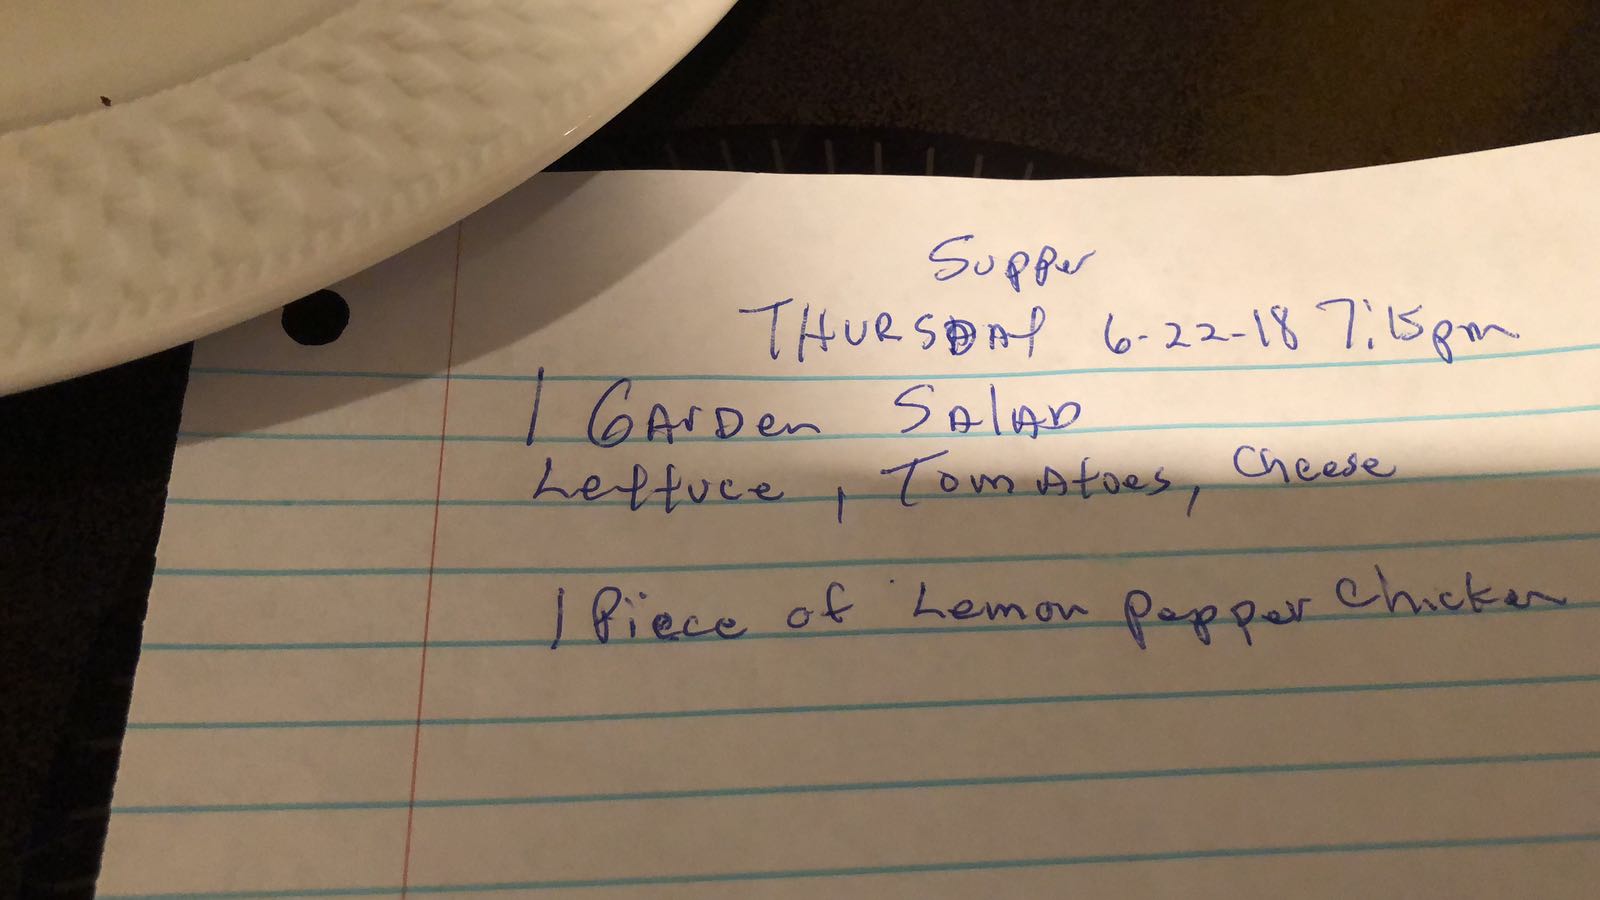 Supper
THURSDAY 6-22-18 7:15pm
1 GArDen SAlAD
Lettuce, TomAtoes, Cheese
1 Piece of Lemon pepper Chicken